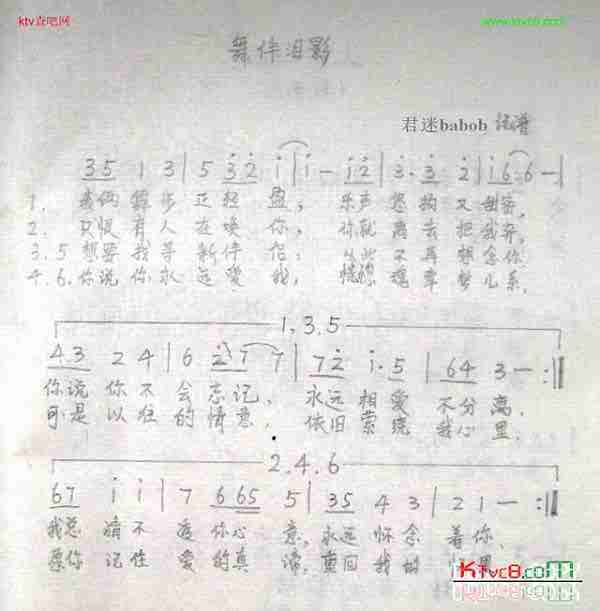 ktv查吧网 www.ktvc8.com
舞伴泪影
君迷babob 记谱
3 5 1 3 | 5 3 2 i | i – i 2 | 3 · 3 2 | i 6 · 6 – |
1. 我俩舞步正轻盈, 乐声悠扬又甜蜜,
2. 只恨有人在唤你, 你就离去把我弃,
3.5 想要找寻新伴侣, 从此不再想念你
4.6. 你说你永远爱我, 魂牵梦儿系,
1.3.5
4 3 2 4 | 6 2 7 7 | 7 2 i · 5 | 6 4 3 – :||
你说你不会忘记, 永远相爱不分离.
可是以往的情意, 依旧萦绕我心里.
2.4.6
6 7 i i | 7 6 6 5 5 | 3 5 4 3 | 2 1 – :||
我总猜不透你心意, 永远怀念着你.
愿你记住爱的真谛, 重回我的
KTvc8.com